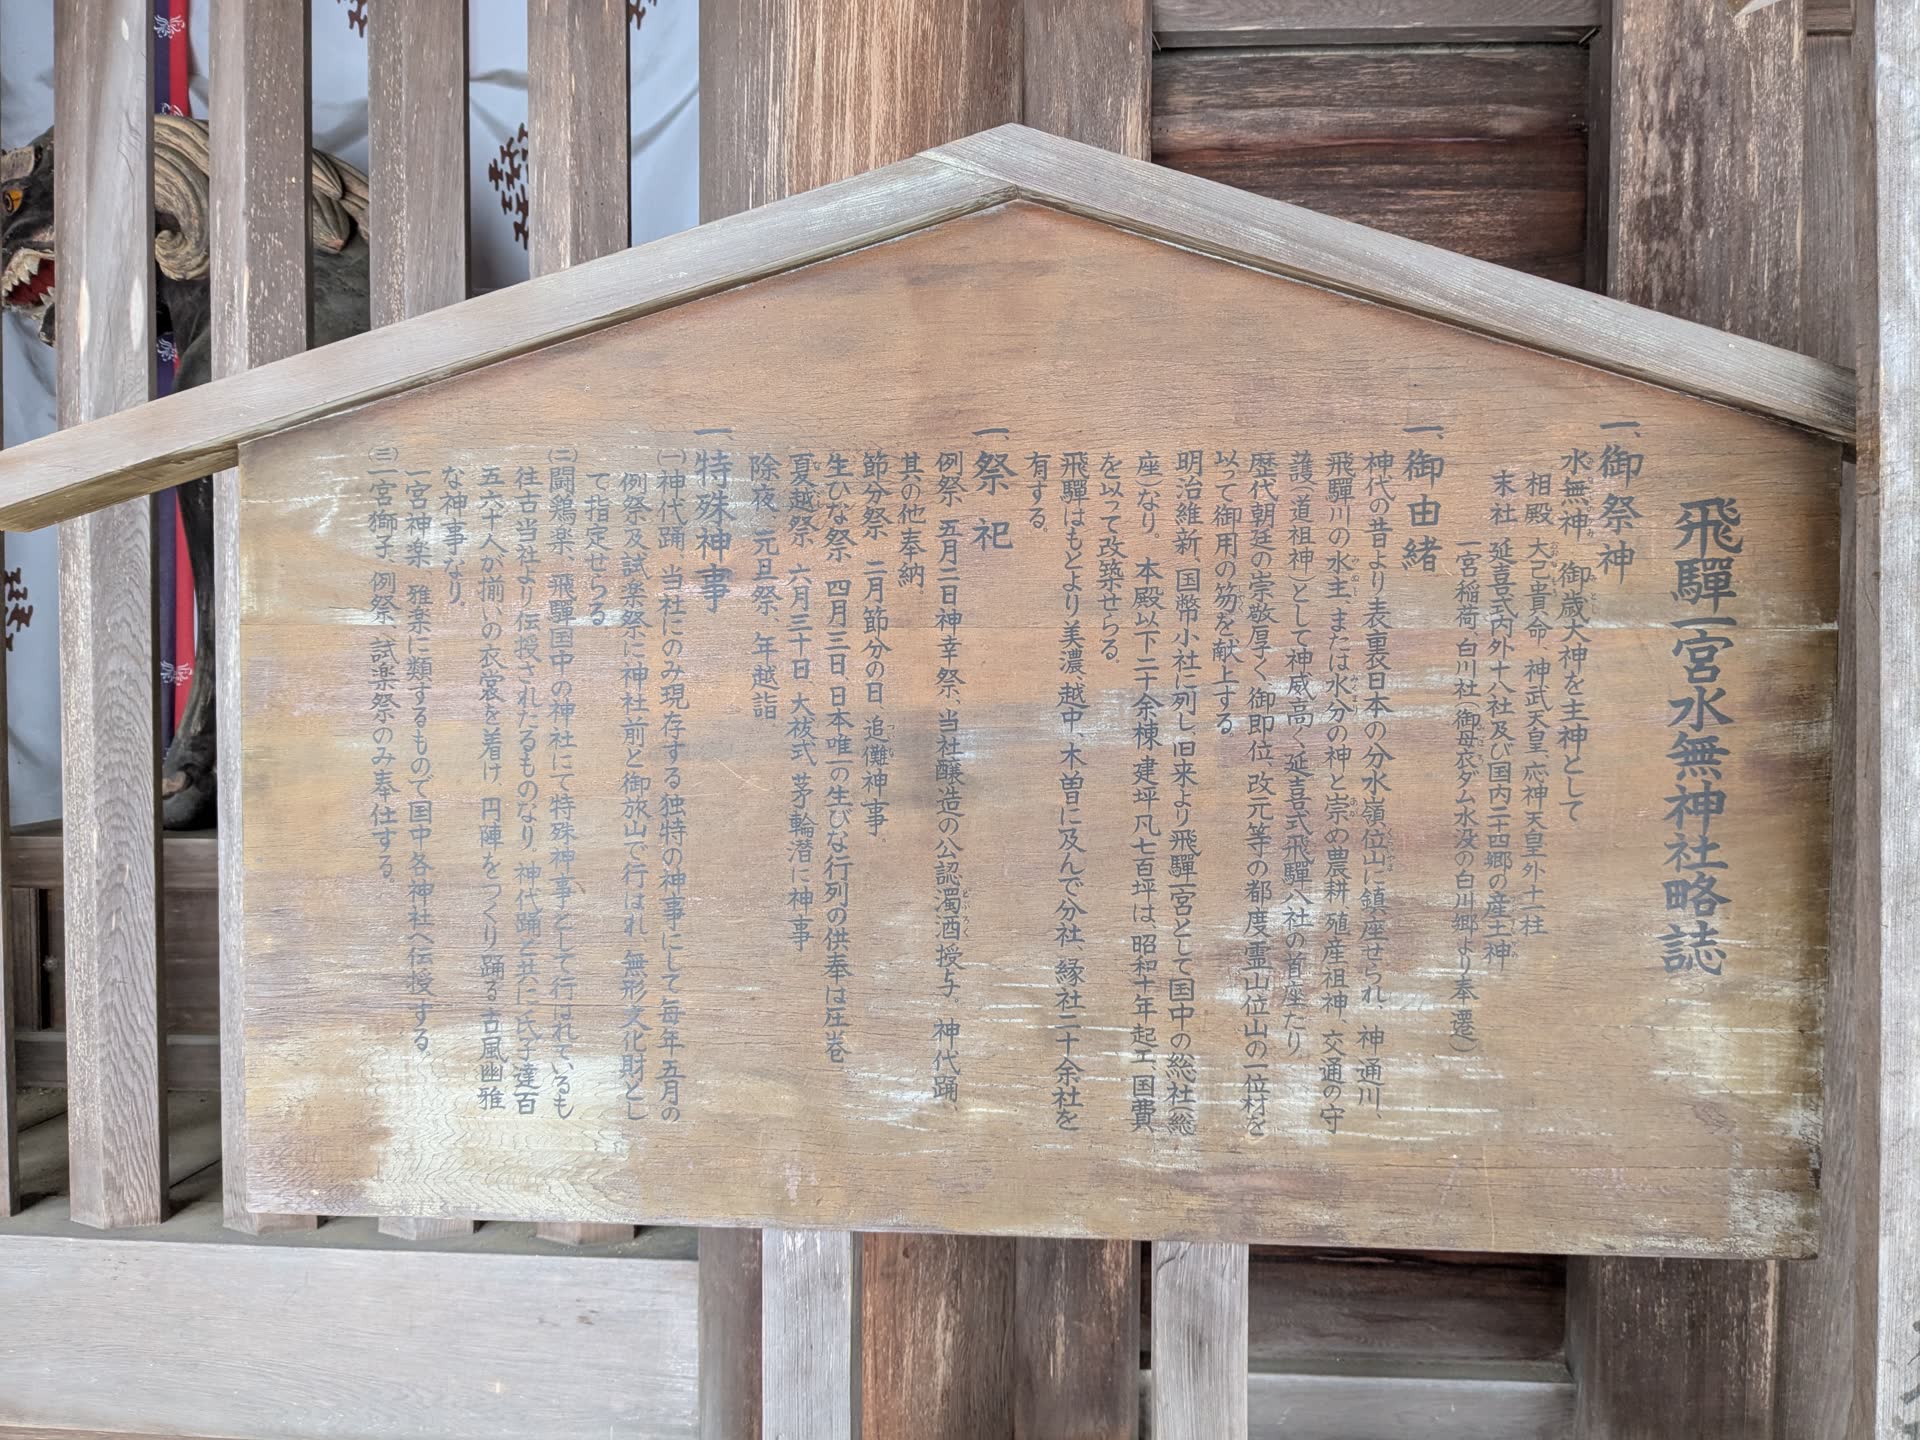 飛驒一宮水無神社略誌
一、御祭神
水無神 御歳大神を主神として
相殿 大己貴命、神武天皇、応神天皇外十一柱
末社 延喜式内外十八社及び国内二十四郷の産土神
一宮稲荷、白川社(御母衣ダム水没の白川郷より奉遷)
一、御由緒
神代の昔より表裏日本の分水嶺位山に鎮座せられ、神通川、
飛驒川の水主、または水分の神と崇め農耕殖産祖神、交通の守
護(道祖神)として神威高く延喜式飛驒八社の首座たり
歴代朝廷の崇敬厚く、御即位、改元等の都度霊山位山の一位材を
以って御用の笏を献上する
明治維新、国幣小社に列し、旧来より飛驒一宮として国中の総社(総
座)なり。本殿以下二十余棟、建坪凡七百坪は、昭和十年起工、国費
を以って改築せらる。
飛驒はもとより美濃、越中、木曽に及んで分社、縁社二十余社を
有する。
一、祭祀
例祭 五月二日神幸祭、当社醸造の公認濁酒授与。神代踊、
其の他奉納
節分祭 二月節分の日、追儺神事。
生びな祭 四月三日、日本唯一の生びな行列の供奉は圧巻
夏越祭 六月三十日 大祓式 茅輪潜に神事
除夜 元旦祭、年越詣
一、特殊神事
(一)神代踊、当社にのみ現存する独特の神事にして毎年五月の
例祭及試楽祭に神社前と御旅山で行はれ、無形文化財とし
て指定せらる
(二)闘鶏楽、飛驒国中の神社にて特殊神事として行はれているも
往古当社より伝授されたるものなり。神代踊と共に氏子達百
五六十人が揃いの衣裳を着け、円陣をつくり踊る古風幽雅
な神事なり。
一宮神楽、雅楽に類するもので国中各神社へ伝授する。
(三)一宮獅子、例祭、試楽祭のみ奉仕する。